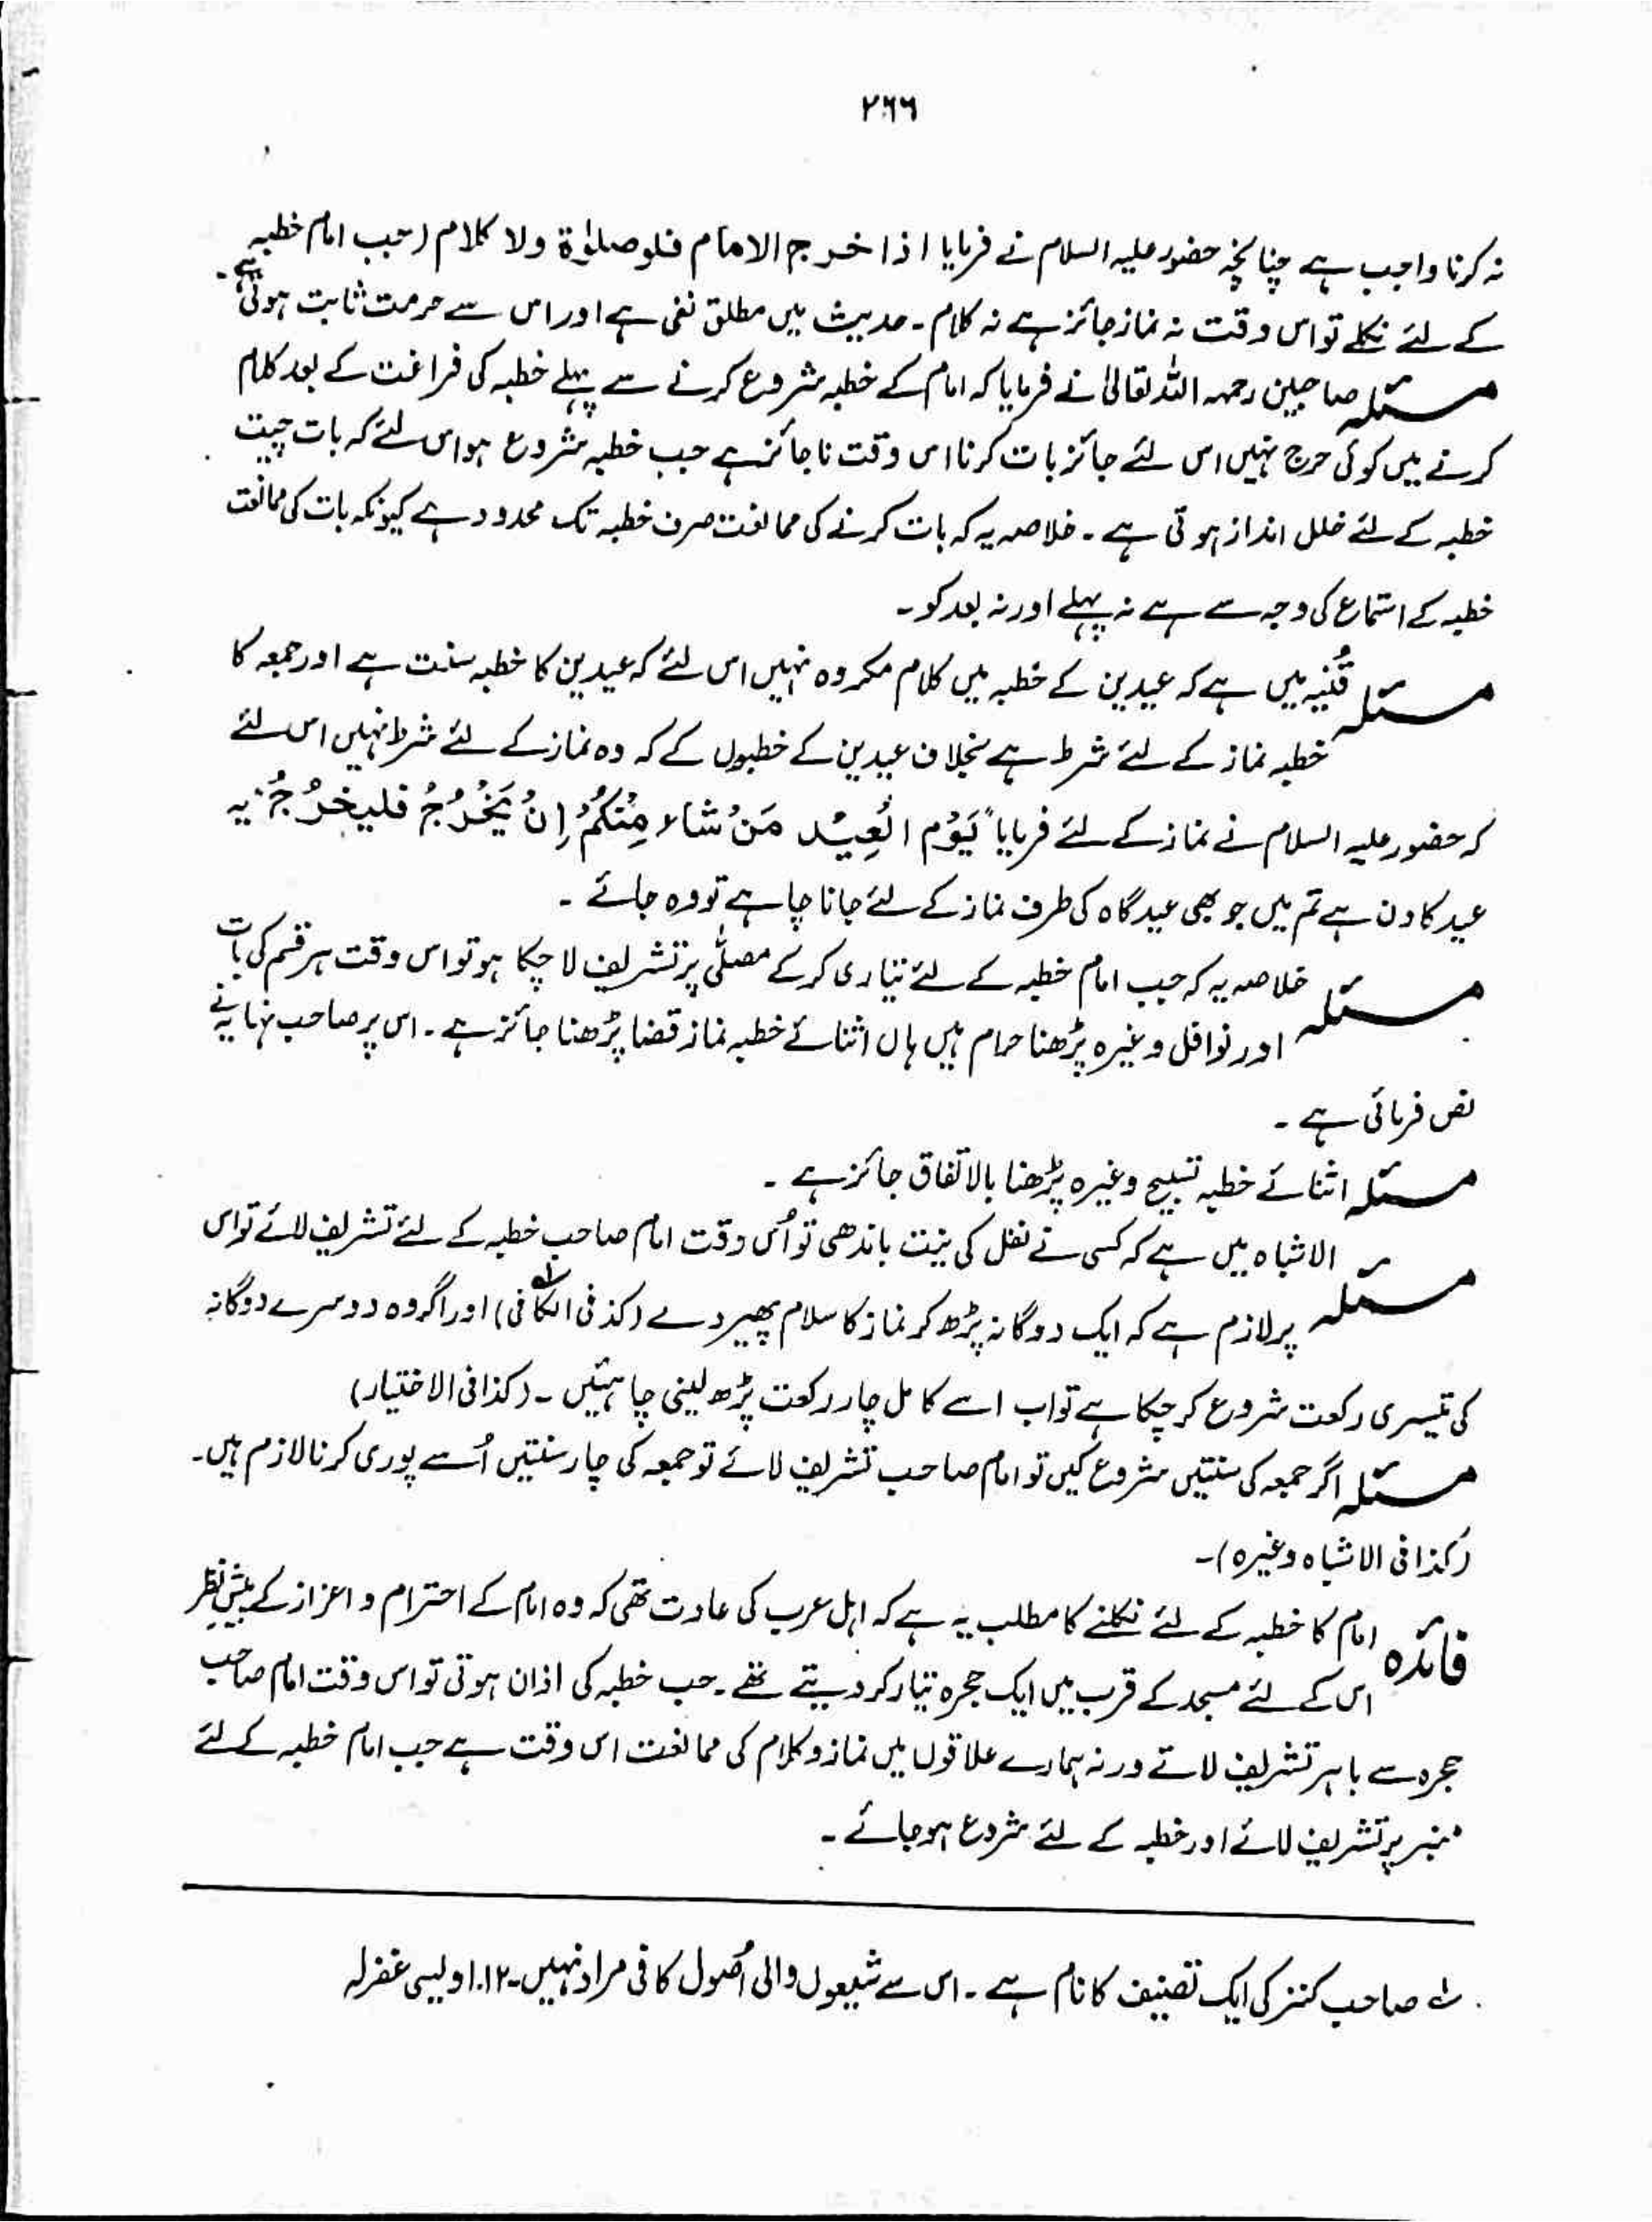 ۲۶۶
نہ کرنا واجب ہے چنانچہ حضور علیہ السلام نے فرمایا اذا خرج الامام فلو صلوٰۃ ولا کلام (جب امام خطبہ
کے لئے نکلے تو اس وقت نہ نماز جائز ہے نہ کلام ۔ حدیث میں مطلق نفی ہے اور اس سے حرمت ثابت ہوتی ہے۔
مسئلہ صاحبین رحمہہ اللہ تعالیٰ نے فرمایا کہ امام کے خطبہ شروع کرنے سے پہلے خطبہ کی فراغت کے بعد کلام
کرنے میں کوئی حرج نہیں اس لئے جائز بات کرنا اس وقت ناجائز ہے جب خطبہ شروع ہو اس لئے کہ بات چیت
خطبہ کے لئے خلل انداز ہوتی ہے ۔ خلاصہ یہ کہ بات کرنے کی ممانعت صرف خطبہ تک محدود ہے کیونکہ بات کی ممانعت
خطبہ کے استماع کی وجہ سے ہے نہ پہلے اور نہ بعد کو ۔
مسئلہ قُنیہ میں ہے کہ عیدین کے خطبہ میں کلام مکروہ نہیں اس لئے کہ عیدین کا خطبہ سنت ہے اور جمعہ کا
خطبہ نماز کے لئے شرط ہے بخلاف عیدین کے خطبوں کے کہ وہ نماز کے لئے شرط نہیں اس لئے
کہ حضور علیہ السلام نے نماز کے لئے فرمایا "یَوْم الْعِیْد مَنْ شاء مِنْکُمْ اِنْ یَخْرُجُ فلیخرُجُ" یہ
عید کا دن ہے تم میں جو بھی عیدگاہ کی طرف نماز کے لئے جانا چاہے تو وہ جائے ۔
مسئلہ خلاصہ یہ کہ جب امام خطبہ کے لئے تیاری کرکے مصلّٰی پر تشریف لا چکا ہو تو اس وقت ہر قسم کی بات
اور نوافل وغیرہ پڑھنا حرام ہیں ہاں اثنائے خطبہ نماز قضا پڑھنا جائز ہے ۔ اس پر صاحب نہایہ نے
نص فرمائی ہے ۔
مسئلہ اثنائے خطبہ تسبیح وغیرہ پڑھنا بالاتفاق جائز ہے ۔
مسئلہ الاشباہ میں ہے کہ کسی نے نفل کی نیت باندھی تو اُس وقت امام صاحب خطبہ کے لئے تشریف لائے تو اس
پر لازم ہے کہ ایک دوگانہ پڑھ کر نماز کا سلام پھیر دے (کذ فی الکافی) اور اگر وہ دوسرے دوگانہ
کی تیسری رکعت شروع کر چکا ہے تو اب اسے کامل چار رکعت پڑھ لینی چاہئیں ۔ (کذا فی الاختیار)
مسئلہ اگر جمعہ کی سنتیں شروع کیں تو امام صاحب تشریف لائے تو جمعہ کی چار سنتیں اُسے پوری کرنا لازم ہیں۔
(کذا فی الاشباہ وغیرہ)۔
فائدہ امام کا خطبہ کے لئے نکلنے کا مطلب یہ ہے کہ اہل عرب کی عادت تھی کہ وہ امام کے احترام و اعزاز کے پیشِ نظر
اس کے لئے مسجد کے قرب میں ایک حجرہ تیار کر دیتے تھے ۔ جب خطبہ کی اذان ہوتی تو اس وقت امام صاحب
حجرہ سے باہر تشریف لاتے ورنہ ہمارے علاقوں میں نماز و کلام کی ممانعت اس وقت ہے جب امام خطبہ کے لئے
منبر پر تشریف لائے اور خطبہ کے لئے شروع ہو جائے ۔
صاحب کنز کی ایک تصنیف کا نام ہے ۔ اس سے شیعوں والی اُصول کافی مراد نہیں ۔۱۲۔ اویسی غفرلہ